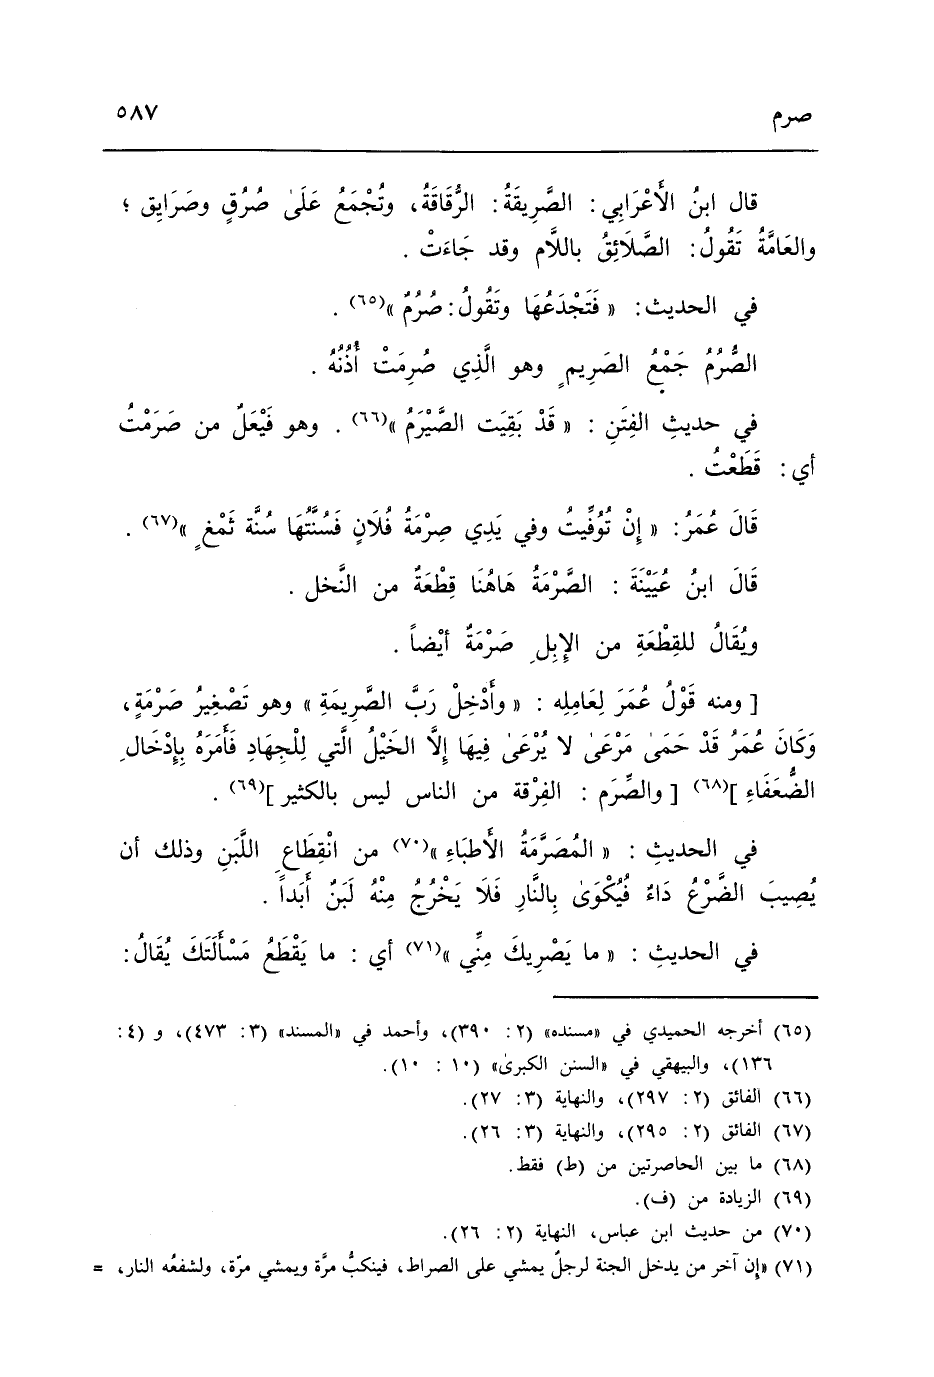 صرم ٥٨٧
قال ابنُ الأَعْرَابِي : الصَّرِيقَةُ : الرُّقَاقَةُ ، وتُجْمَعُ عَلَىٰ صُرُقٍ وصَرَايِق ؛
والعَامَّةُ تَقُولُ : الصَّلَائِقُ باللَّام وقد جَاءَتْ .
في الحديث : « فَتَجْدَعُهَا وتَقُولُ : صُرُمٌ »(٦٥) .
الصُّرُمُ جَمْعُ الصَرِيمِ وهو الَّذِي صُرِمَتْ أُذُنُهُ .
في حديثِ الفِتَنِ : « قَدْ بَقِيَت الصَّيْرَمُ »(٦٦) . وهو فَيْعَلٌ من صَرَمْتُ
أي : قَطَعْتُ .
قَالَ عُمَرُ : « إِنْ تُوُفِّيتُ وفي يَدِي صِرْمَةُ فُلَانٍ فَسُنَّتُهَا سُنَّة ثَمْغٍ »(٦٧) .
قَالَ ابنُ عُيَيْنَةَ : الصَّرْمَةُ هَاهُنَا قِطْعَةٌ من النَّخل .
ويُقَالُ للقِطْعَةِ من الإِبِلِ صَرْمَةٌ أيْضاً .
[ ومنه قَوْلُ عُمَرَ لِعَامِلِه : « وأَدْخِلْ رَبَّ الصَّرِيمَةِ » وهو تَصْغِيرُ صَرْمَةٍ ،
وَكَانَ عُمَرُ قَدْ حَمَىٰ مَرْعَىٰ لا يُرْعَىٰ فِيهَا إِلَّا الخَيْلُ الَّتي لِلْجِهَادِ فَأَمَرَهُ بِإِدْخَالِ
الضُّعَفَاءِ ](٦٨) [ والصِّرَم : الفِرْقة من الناس ليس بالكثير ](٦٩) .
في الحديثِ : « المُصَرَّمَةُ الأَطبَاءِ »(٧٠) من انْقِطَاعِ اللَّبَنِ وذلك أن
يُصِيبَ الضَّرْعُ دَاءٌ فَيُكْوَىٰ بِالنَّارِ فَلَا يَخْرُجُ مِنْهُ لَبَنٌ أَبَداً .
في الحديثِ : « ما يَصْرِيكَ مِنِّي »(٧١) أي : ما يَقْطَعُ مَسْأَلَتَكَ يُقَالُ :
(٦٥) أخرجه الحميدي في «مسنده» (٢ : ٣٩٠)، وأحمد في «المسند» (٣ : ٤٧٣)، و (٤ :
١٣٦)، والبيهقي في «السنن الكبرىٰ» (١٠ : ١٠).
(٦٦) الفائق (٢ : ٢٩٧)، والنهاية (٣ : ٢٧).
(٦٧) الفائق (٢ : ٢٩٥)، والنهاية (٣ : ٢٦).
(٦٨) ما بين الحاصرتين من (ط) فقط.
(٦٩) الزيادة من (ف).
(٧٠) من حديث ابن عباس، النهاية (٢ : ٢٦).
(٧١) «إن آخر من يدخل الجنة لرجلٌ يمشي على الصراط، فينكبُّ مرَّة ويمشي مرّة، ولشفعُه النار، =